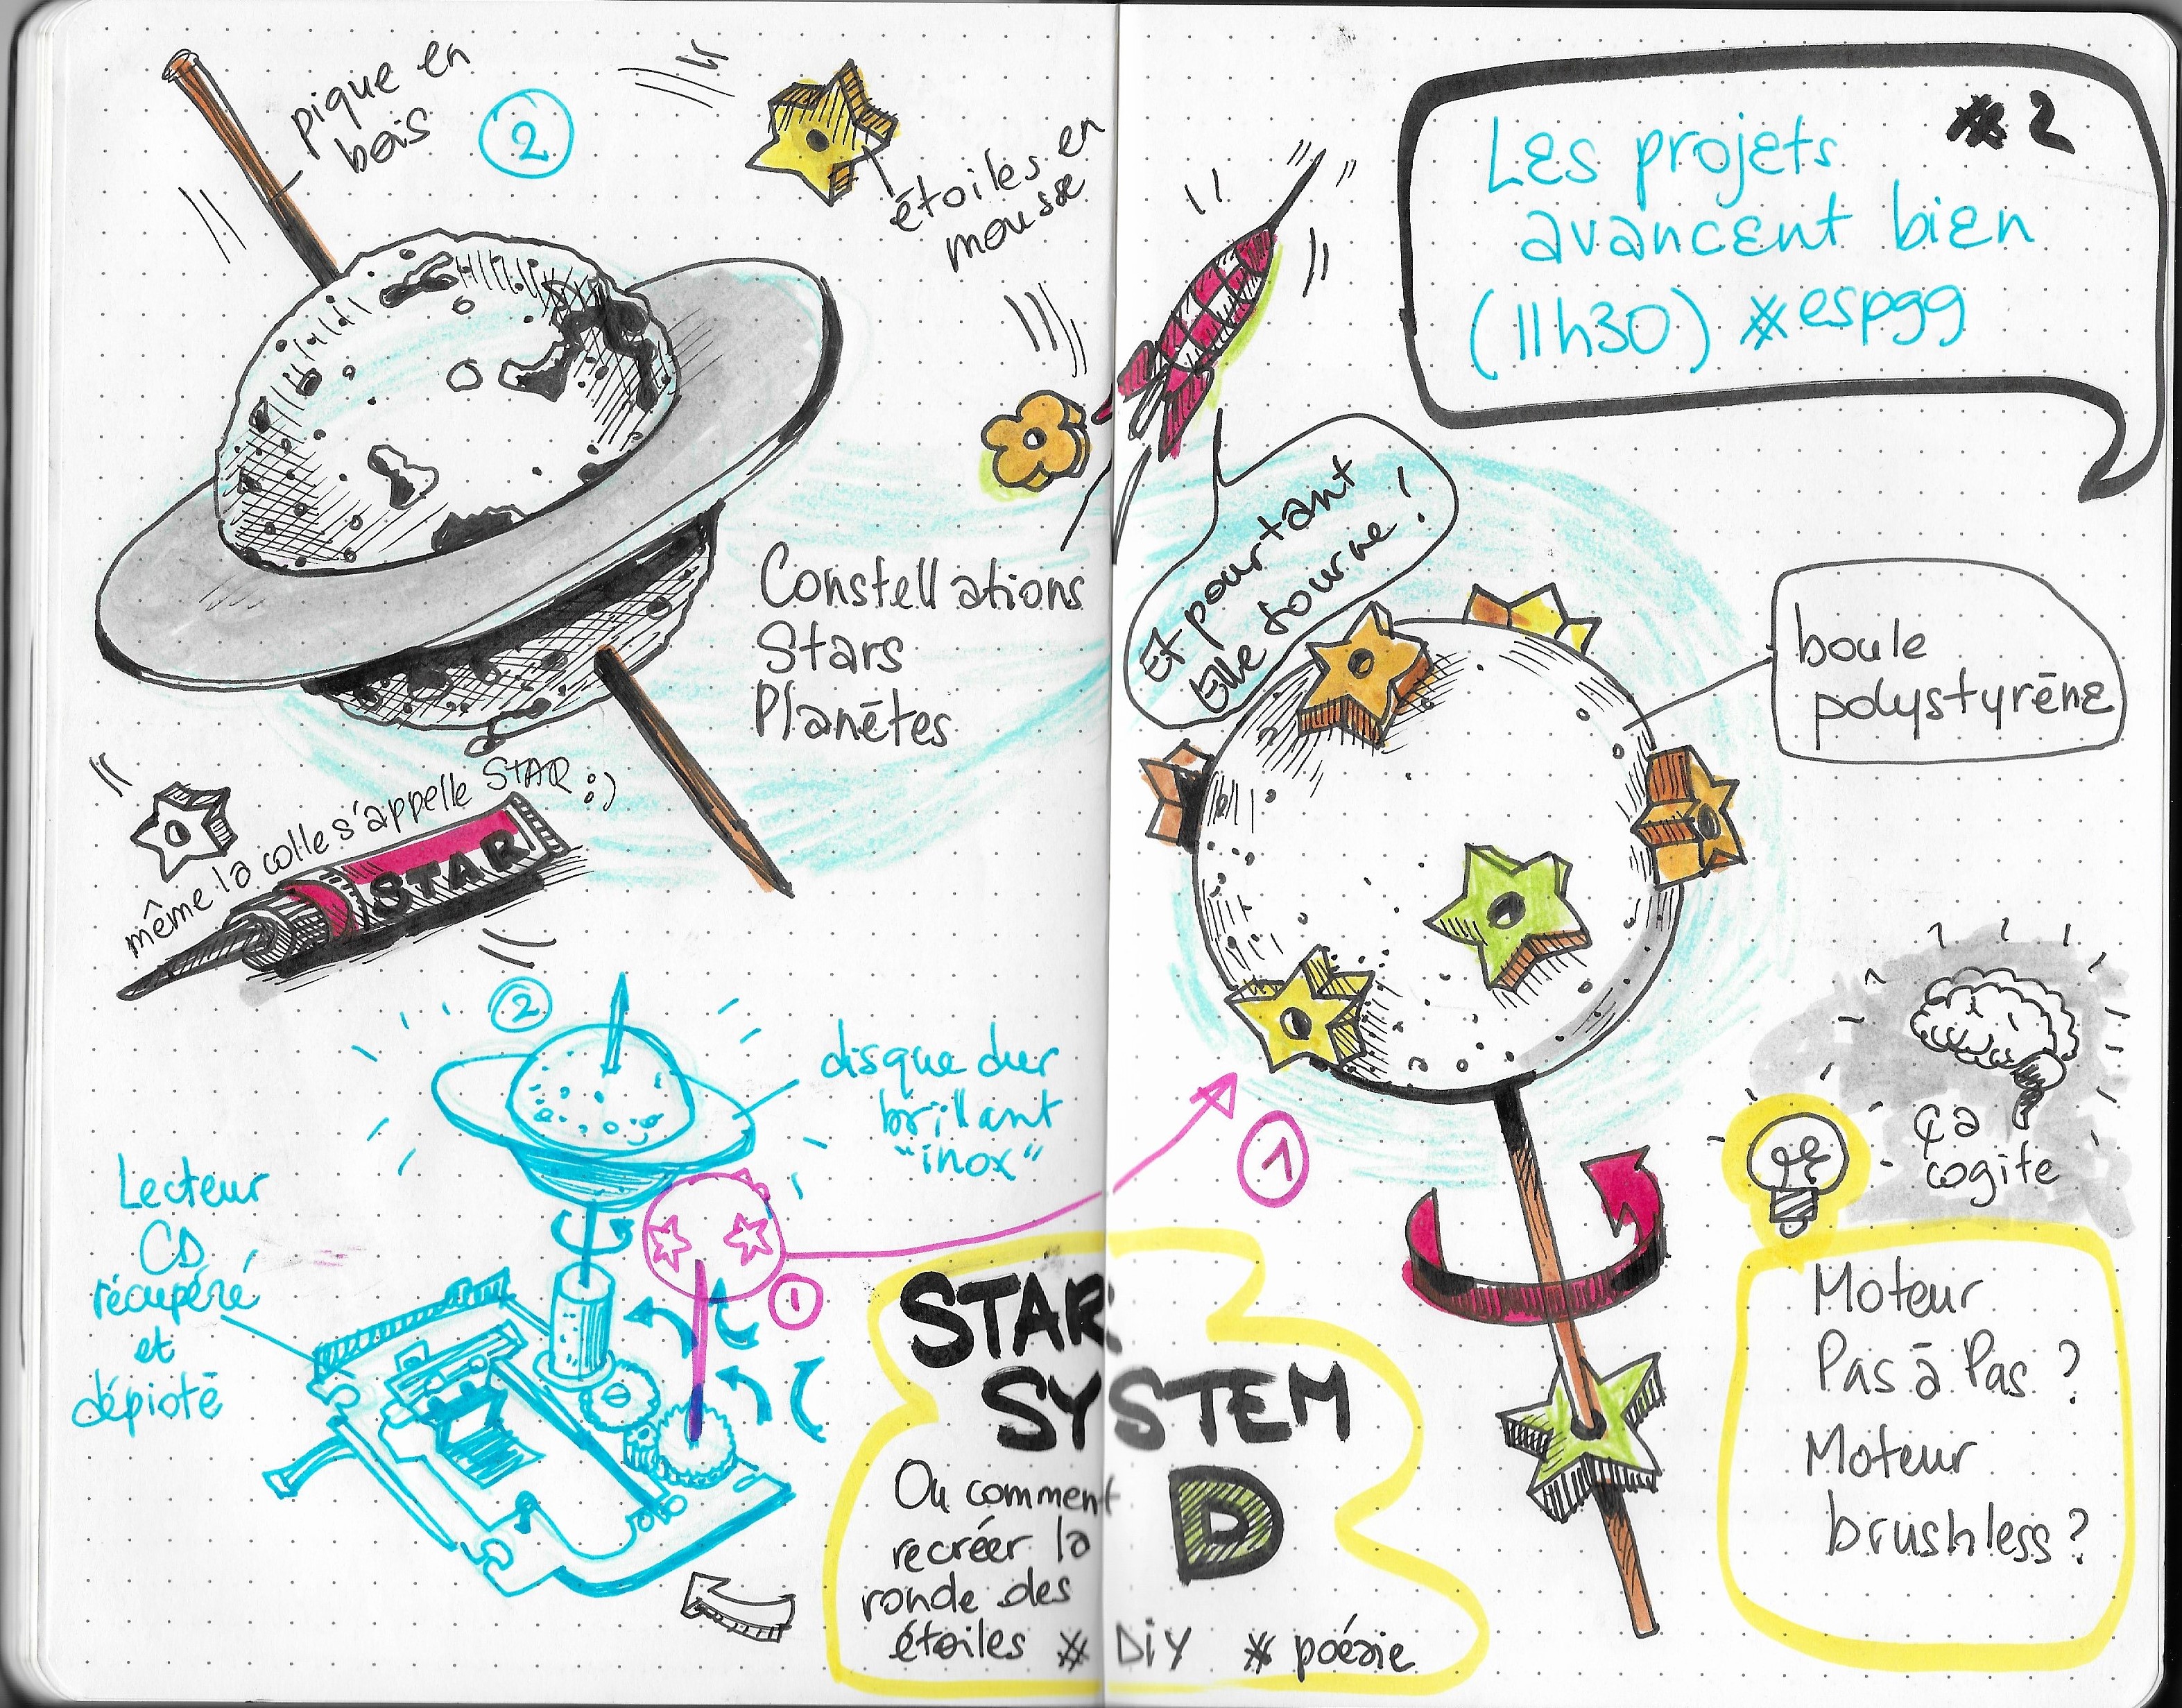 pique en
bois
2
étoiles en
mousse
Constellations
Stars
Planètes
même la colle s'appelle STAR :)
STAR
2
disque dur
brillant
"inox"
Lecteur
CD
récupéré
et
dépioté
1
#2
Les projets
avancent bien
(11h30) #espgg
Et pourtant
Elle tourne !
boule
polystyrène
1
ça
cogite
Moteur
Pas à Pas ?
Moteur
brushless ?
STAR
SYSTEM
D
Ou comment
recréer la
ronde des
étoiles # DiY # poésie